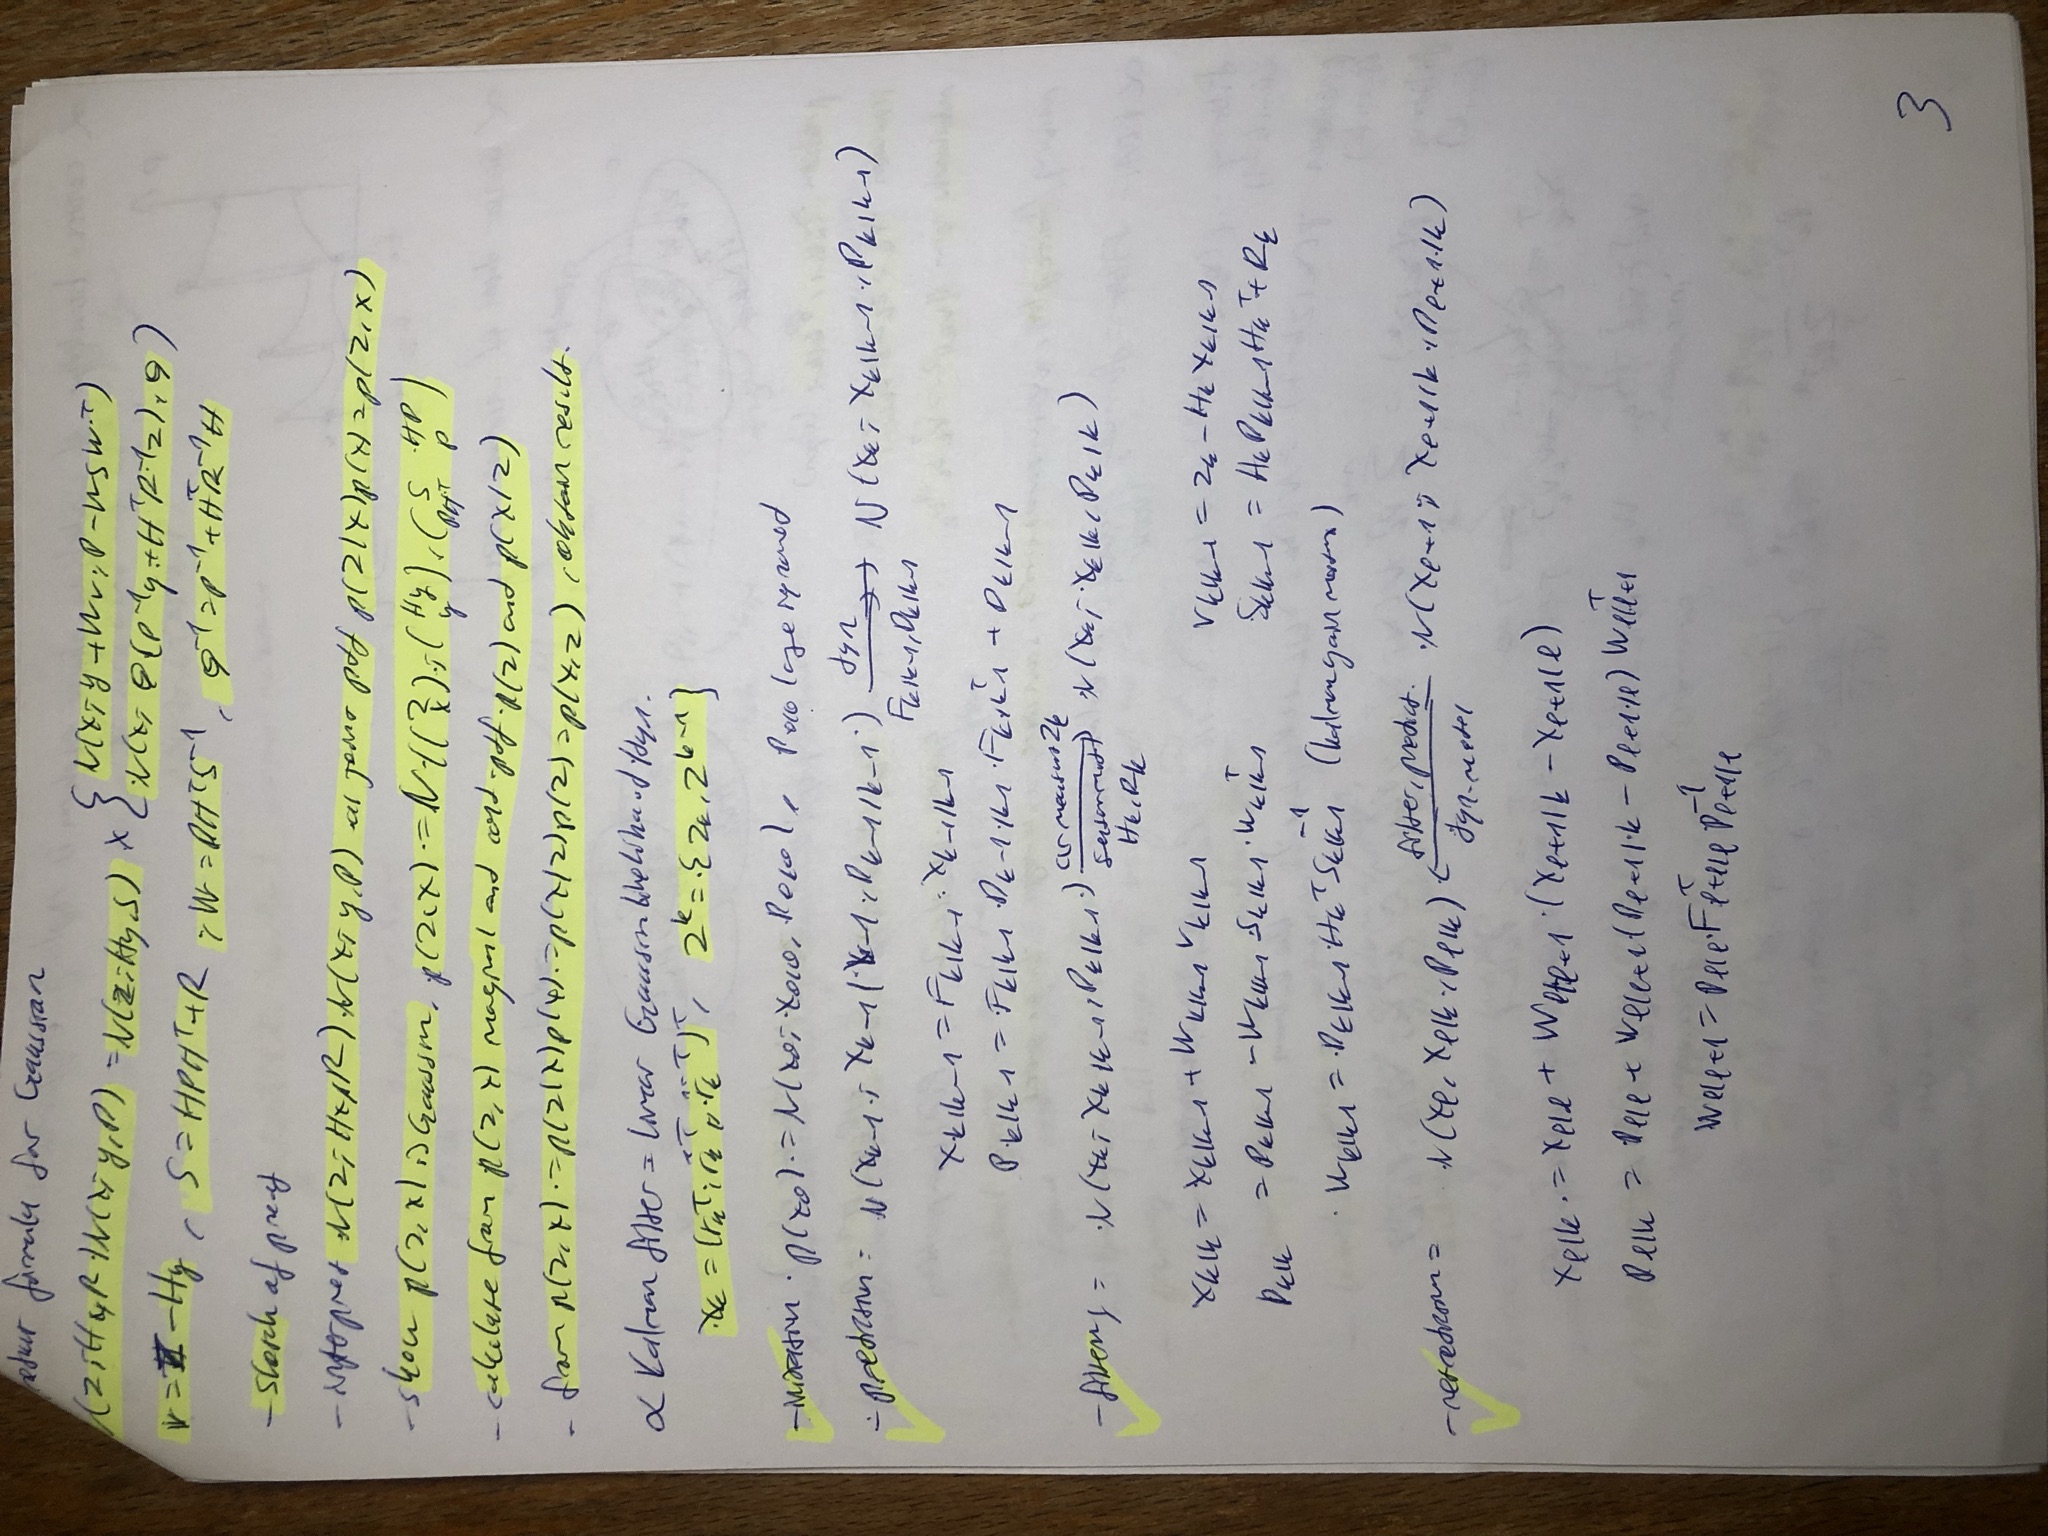 formula for Gaussian
N(z; Hx, R) N(x; y, P) = N(z; Hy, S) × { N(x; y + Wν, P − WSWᵀ)
N(x; Q(P⁻¹y + HᵀR⁻¹z), Q)
ν = z − Hy, S = HPHᵀ + R, W = PHᵀS⁻¹, Q⁻¹ = P⁻¹ + HᵀR⁻¹H
- Sketch of proof
- interpret N(z; Hx, R) N(x; y, P) as joint pdf p(z|x)p(x) = p(z, x)
- show p(z, x) is Gaussian, p(z, x) = N((z x); (Hy y), (S HP PHᵀ P)
- calculate from p(z, x) marginal and cond. pdf p(z) and p(x|z)
- from p(z, x) = p(z|x)p(x) = p(x|z)p(z) = p(x, z), obtain result.
α Kalman filter = linear Gaussian likelihood/dyn.
xₖ = (rₖᵀ, ṙₖᵀ, r̈ₖᵀ)ᵀ, Zᵏ = {zₖ, Zᵏ⁻¹}
- initiation p(x₀) = N(x₀; x₀|₀, P₀|₀), P₀|₀ large
- prediction = N(xₖ₋₁; xₖ₋₁|ₖ₋₁, Pₖ₋₁|ₖ₋₁) dyn → N(xₖ; xₖ|ₖ₋₁, Pₖ|ₖ₋₁)
Fₖ|ₖ₋₁, Dₖ|ₖ₋₁
xₖ|ₖ₋₁ = Fₖ|ₖ₋₁ xₖ₋₁|ₖ₋₁
Pₖ|ₖ₋₁ = Fₖ|ₖ₋₁ Pₖ₋₁|ₖ₋₁ Fₖ|ₖ₋₁ᵀ + Dₖ|ₖ₋₁
- filtering = N(xₖ; xₖ|ₖ₋₁, Pₖ|ₖ₋₁) zₖ → N(xₖ; xₖ|ₖ, Pₖ|ₖ)
Hₖ, Rₖ
xₖ|ₖ = xₖ|ₖ₋₁ + Wₖ|ₖ₋₁ νₖ|ₖ₋₁ νₖ|ₖ₋₁ = zₖ − Hₖ xₖ|ₖ₋₁
Pₖ|ₖ = Pₖ|ₖ₋₁ − Wₖ|ₖ₋₁ Sₖ|ₖ₋₁ Wₖ|ₖ₋₁ᵀ Sₖ|ₖ₋₁ = Hₖ Pₖ|ₖ₋₁ Hₖᵀ + Rₖ
Wₖ|ₖ₋₁ = Pₖ|ₖ₋₁ Hₖᵀ Sₖ|ₖ₋₁⁻¹ (Kalman gain matrix)
- retrodiction = N(xₗ, xₗ|ₖ, Pₗ|ₖ) ← filter, predict. N(xₗ₊₁; xₗ₊₁|ₖ, Pₗ₊₁|ₖ)
dyn. model
xₗ|ₖ = xₗ|ₗ + Wₗ|ₗ₊₁ (xₗ₊₁|ₖ − xₗ₊₁|ₗ)
Pₗ|ₖ = Pₗ|ₗ + Wₗ|ₗ₊₁ (Pₗ₊₁|ₖ − Pₗ₊₁|ₗ) Wₗ|ₗ₊₁ᵀ
Wₗ|ₗ₊₁ = Pₗ|ₗ Fₗ₊₁|ₗᵀ Pₗ₊₁|ₗ⁻¹
3